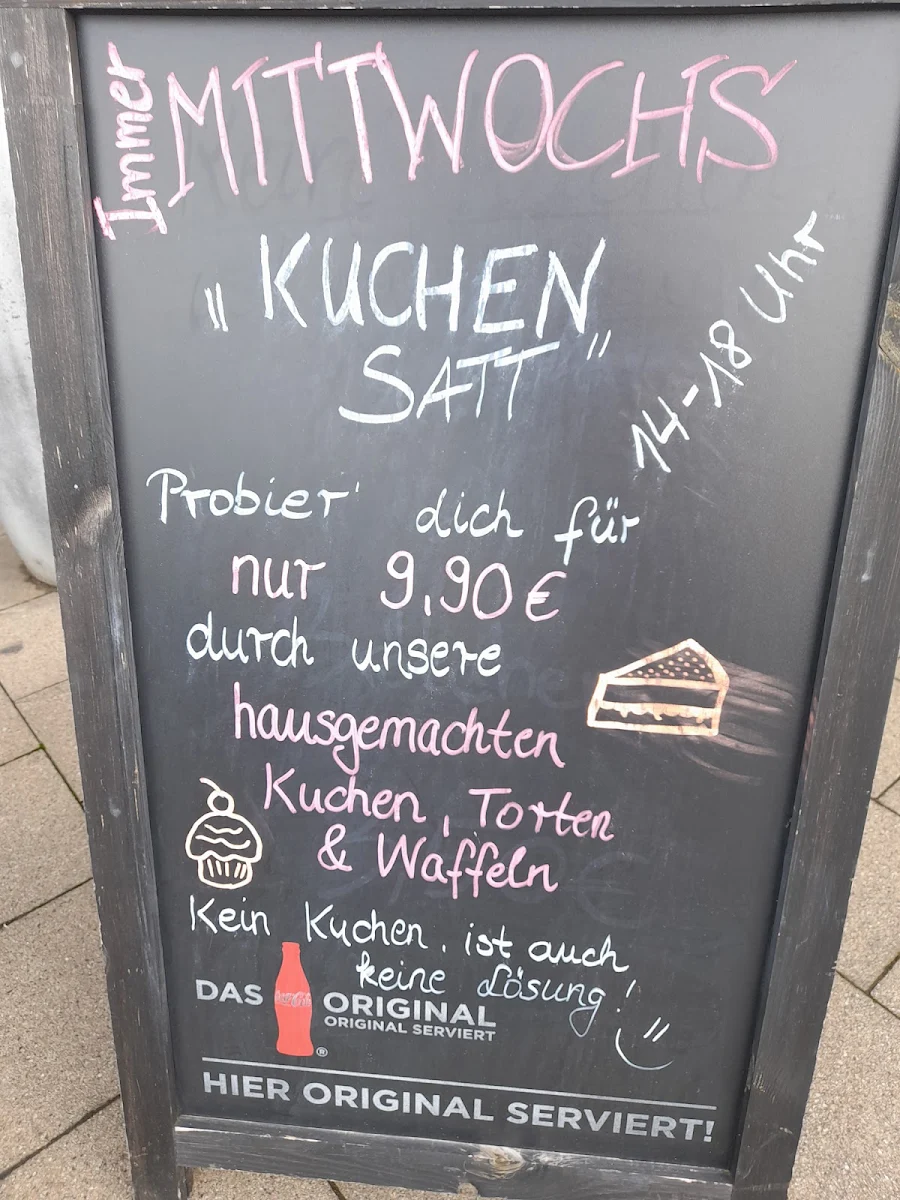 Immer
MITTWOCHS
„KUCHEN
SATT"
14-18 Uhr
Probier' dich für
nur 9,90€
durch unsere
hausgemachten
Kuchen, Torten
& Waffeln
Kein Kuchen, ist auch
keine Lösung!
DAS Coca-Cola ORIGINAL
ORIGINAL SERVIERT
®
HIER ORIGINAL SERVIERT!